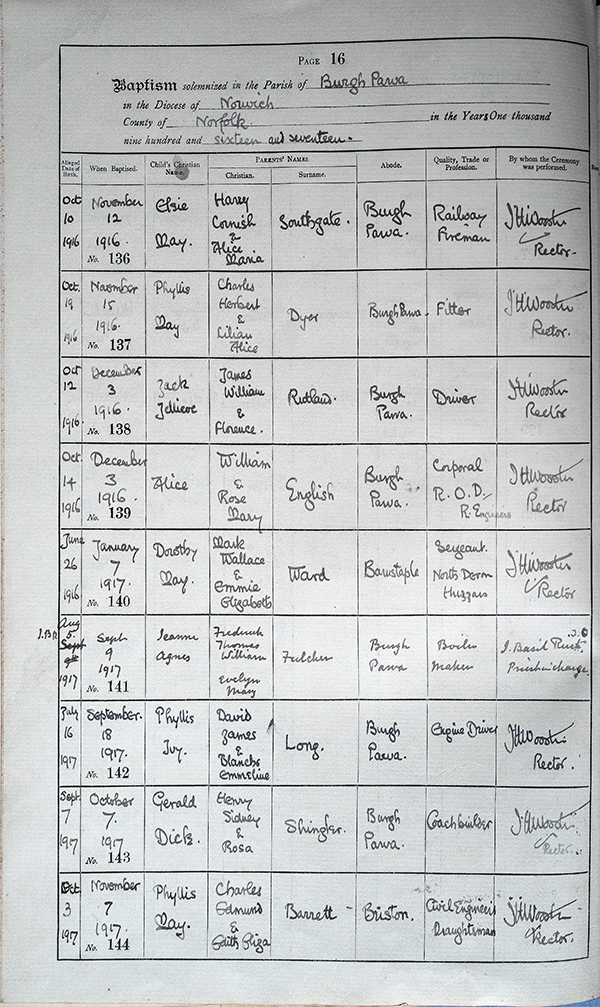 PAGE 16
Baptism solemnized in the Parish of Burgh Parva
in the Diocese of Norwich
County of Norfolk in the Years One thousand
nine hundred and sixteen and seventeen.
Alleged Date of Birth. When Baptised. Child's Christian Name. PARENTS' NAMES Christian. Surname. Abode. Quality, Trade or Profession. By whom the Ceremony was performed.
Oct 10 1916
November 12 1916. No. 136
Elsie May.
Harry Cornish & Alice Maria
Southgate.
Burgh Parva.
Railway Fireman
Rector.
Oct. 19 1916
November 15 1916. No. 137
Phyllis May
Charles Herbert & Lilian Alice
Dyer
Burgh Parva.
Fitter
Rector.
Oct 12 1916
December 3 1916. No. 138
Jack Jellicoe
James William & Florence.
Rutland.
Burgh Parva.
Driver
Rector
Oct. 14 1916
December 3 1916. No. 139
Alice
William & Rose Mary
English
Burgh Parva.
Corporal R.O.D. R. Engineers
Rector
June 26 1916
January 7 1917. No. 140
Dorothy May.
Mark Wallace & Emmie Elizabeth
Ward
Barnstaple
Sergeant. North Devon Huzzars
Rector
Aug 5. Sept 1917
Sept 9 1917 No. 141
Jeanne Agnes
Frederick Thomas William Evelyn Mary
Fulcher
Burgh Parva
Boiler Maker
J. Basil Priest in charge.
July 16 1917
September. 18 1917. No. 142
Phyllis Ivy.
David James & Blanche Emmeline
Long.
Burgh Parva.
Engine Driver
Rector.
Sept. 7 1917
October 7. 1917 No. 143
Gerald Dick.
Henry Sidney & Rosa
Shingler.
Burgh Parva.
Coachbuilder
Rector.
Oct. 3 1917
November 7 1917. No. 144
Phyllis May.
Charles Edmund & Edith Eliza
Barrett
Briston.
Civil Engineers Draughtsman
Rector.